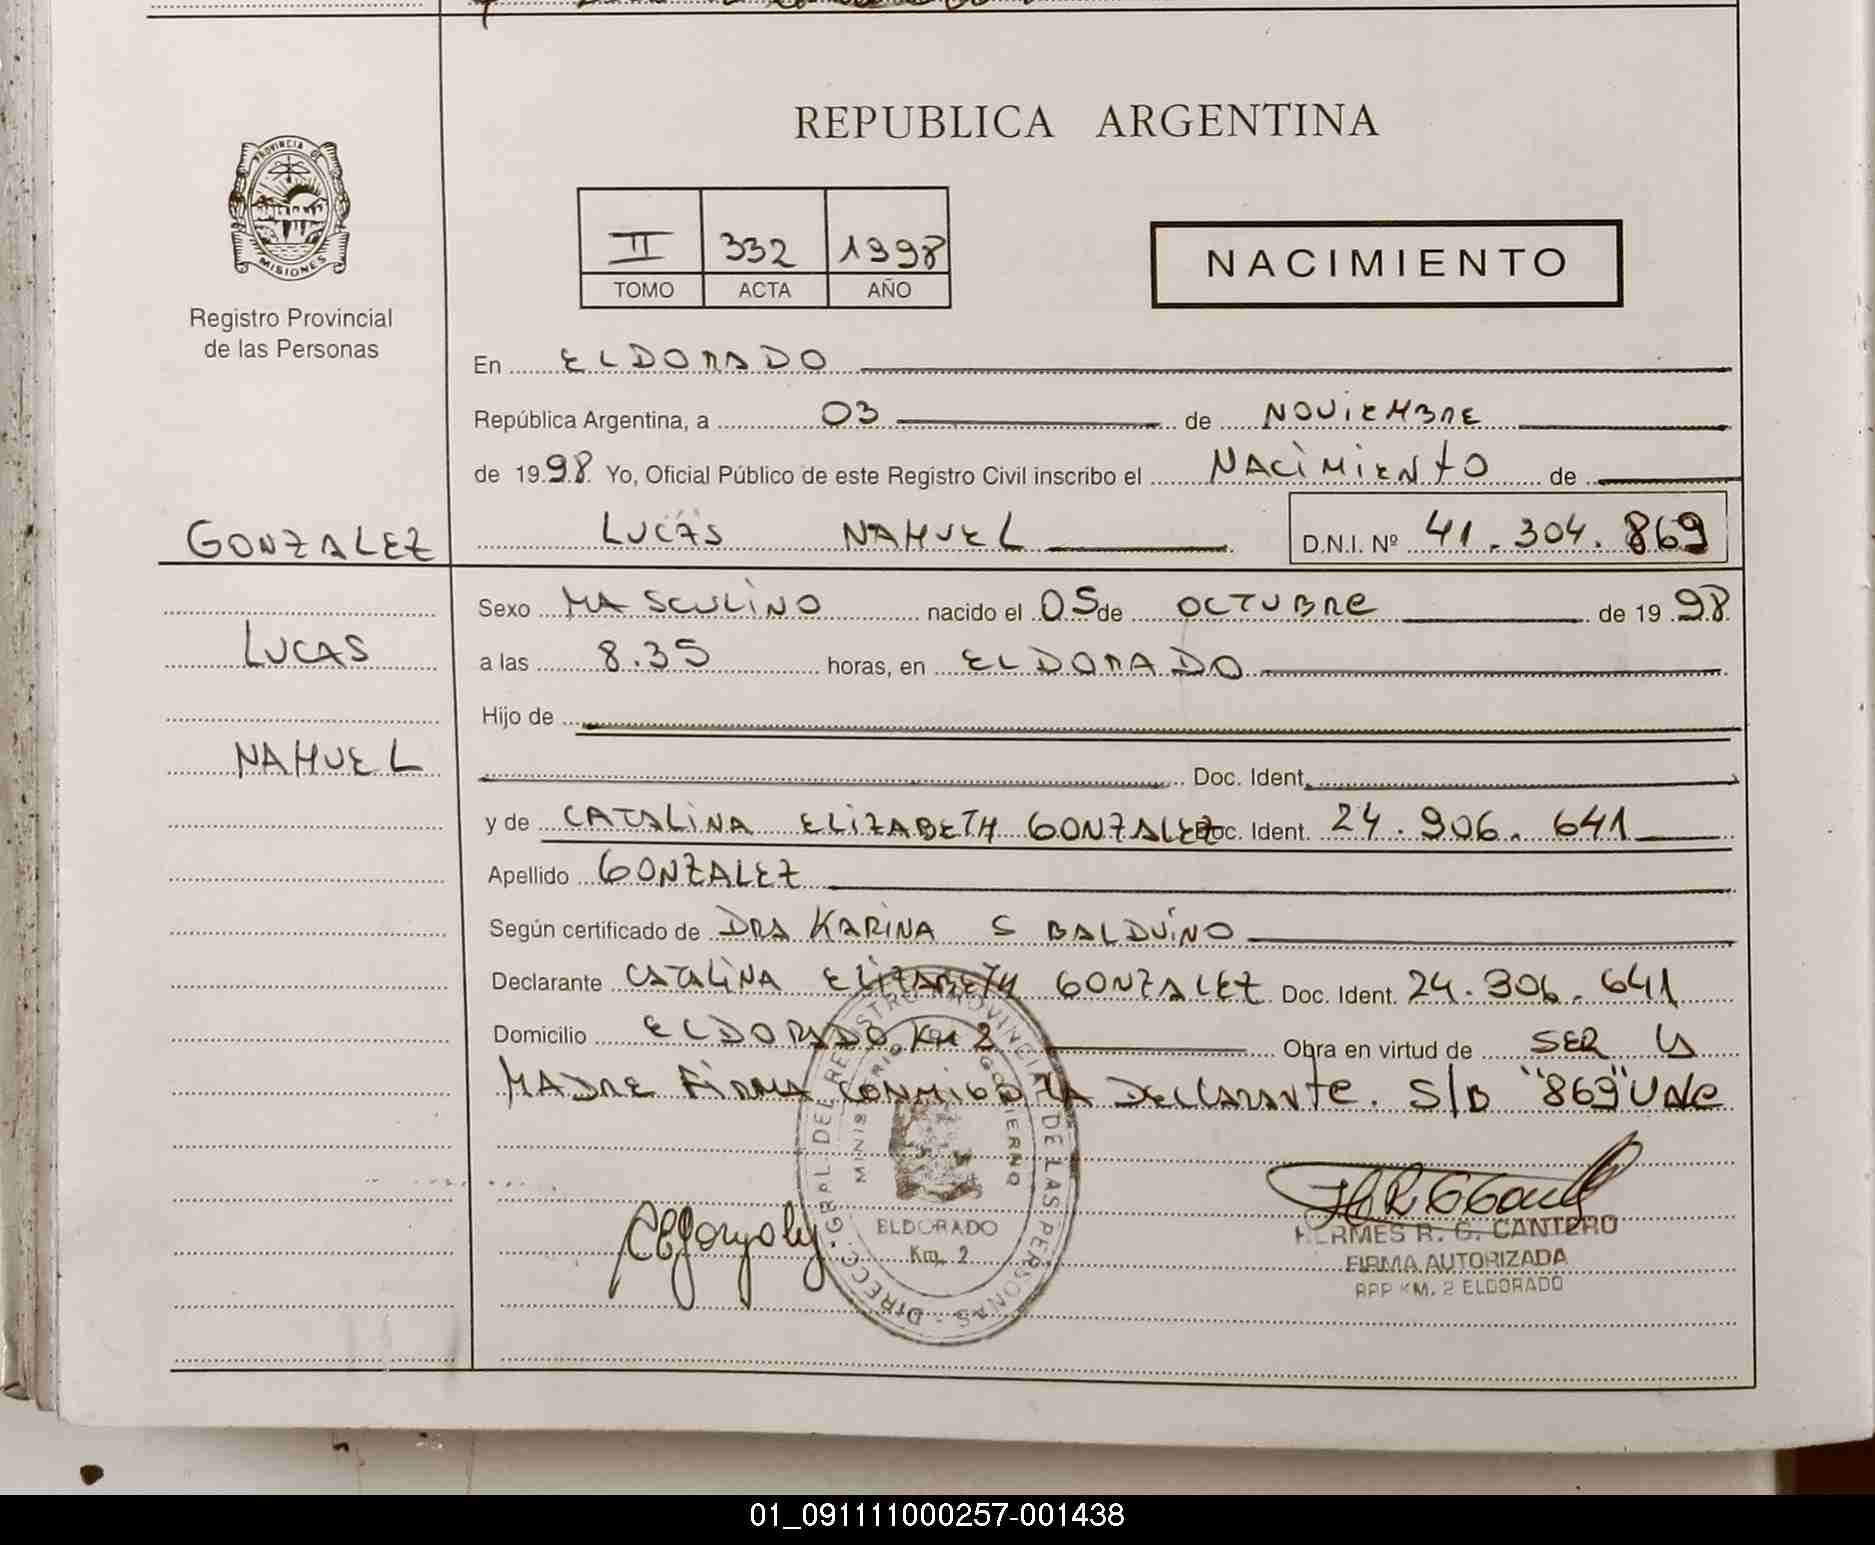 REPUBLICA ARGENTINA
PROVINCIA DE
MISIONES
Registro Provincial
de las Personas
II 332 1998
TOMO ACTA AÑO
NACIMIENTO
En ELDORADO
República Argentina, a 03 de NOVIEMBRE
de 1998 Yo, Oficial Público de este Registro Civil inscribo el NACIMIENTO de
GONZALEZ LUCAS NAHUEL D.N.I. Nº 41.304.869
Sexo MASCULINO nacido el 05 de OCTUBRE de 1998
LUCAS
a las 8.35 horas, en ELDORADO
Hijo de
NAHUEL
Doc. Ident.
y de CATALINA ELIZABETH GONZALEZ Doc. Ident. 24.906.641
Apellido GONZALEZ
Según certificado de DRA KARINA S BALDUINO
Declarante CATALINA ELIZABETH GONZALEZ Doc. Ident. 24.306.641
Domicilio ELDORADO KM 2 Obra en virtud de SER LA
MADRE FIRMA CONMIGO LA DECLARANTE. S/B "869" VALE
DIRECC. GRAL. DEL REGISTRO PROVINCIAL DE LAS PERSONAS
MINISTERIO GOBIERNO
ELDORADO
Km. 2
CEGonzalez
HERMES R. G. CANTERO
FIRMA AUTORIZADA
RPP KM. 2 ELDORADO
01_091111000257-001438